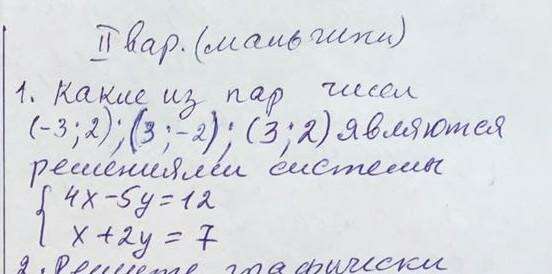 II вар. (мальчики)
1. Какие из пар чисел
(-3; 2); (3; -2); (3; 2) являются
решениями системы
{ 4x - 5y = 12
x + 2y = 7
2. Решите графически